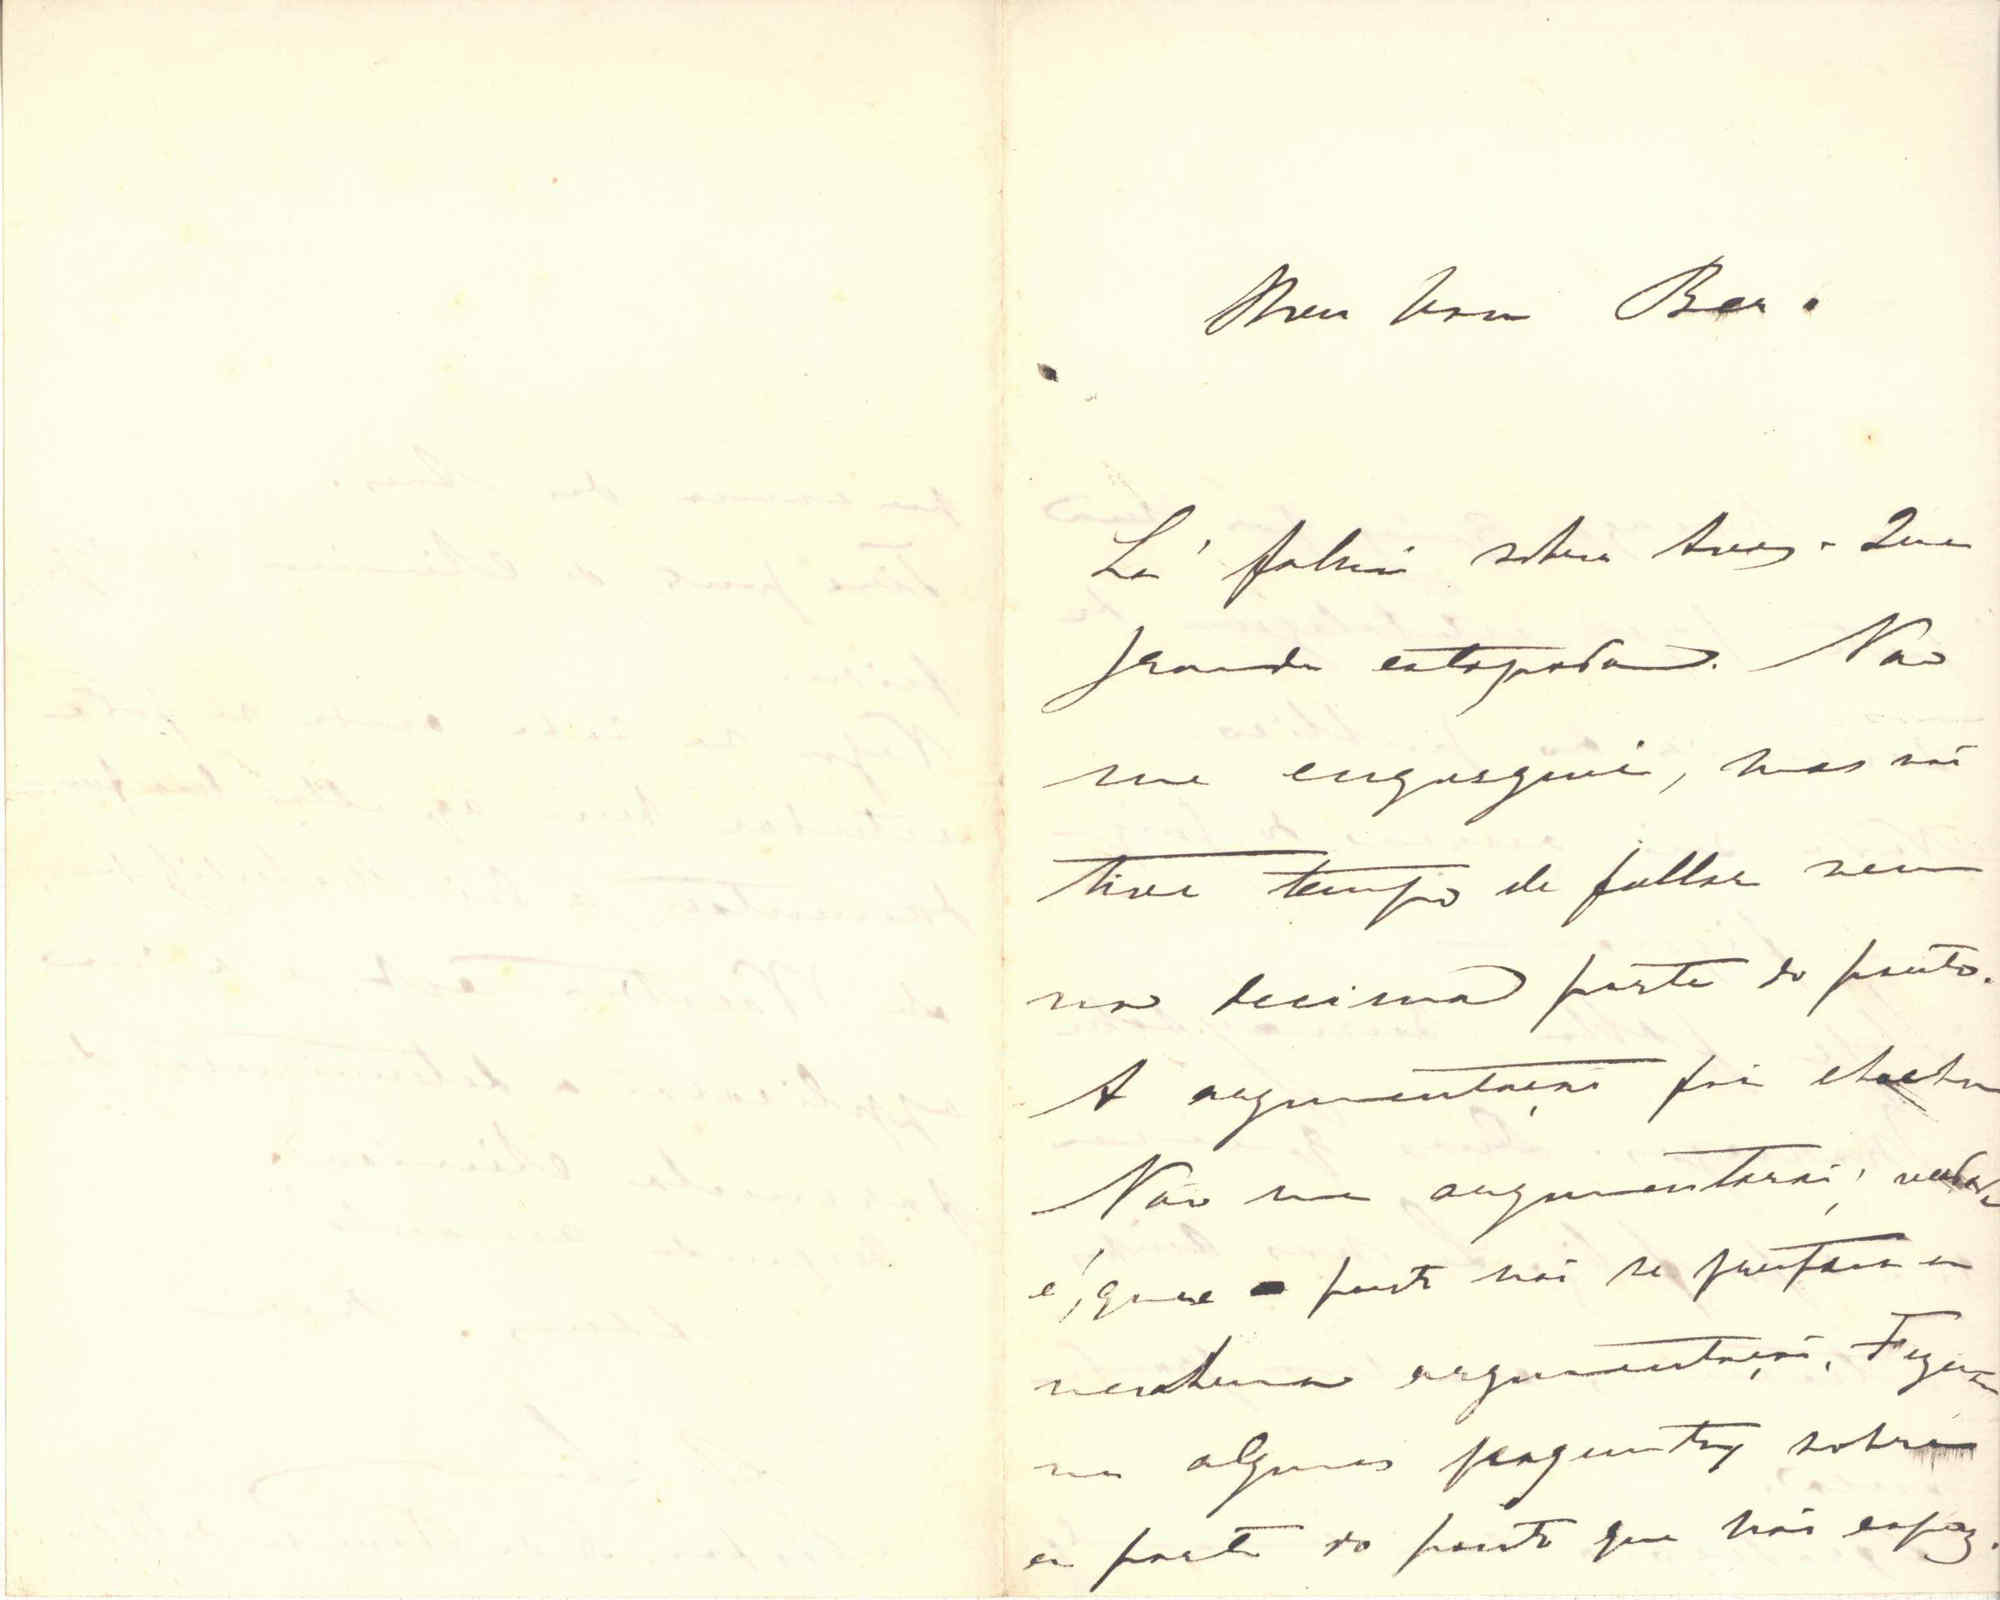 Meu bom Ber.
Lá fallei sobre Aves. Que
grande estopada. Não
me engasguei, mas não
tive tempo de fallar nem
na decima parte do ponto.
A argumentação foi chocha
Não me argumentarai; verdade
é, que o ponto não se prestava a
nenhuma argumentação. Fizeram
me algumas perguntas sobre
a parte do ponto que não expuz.